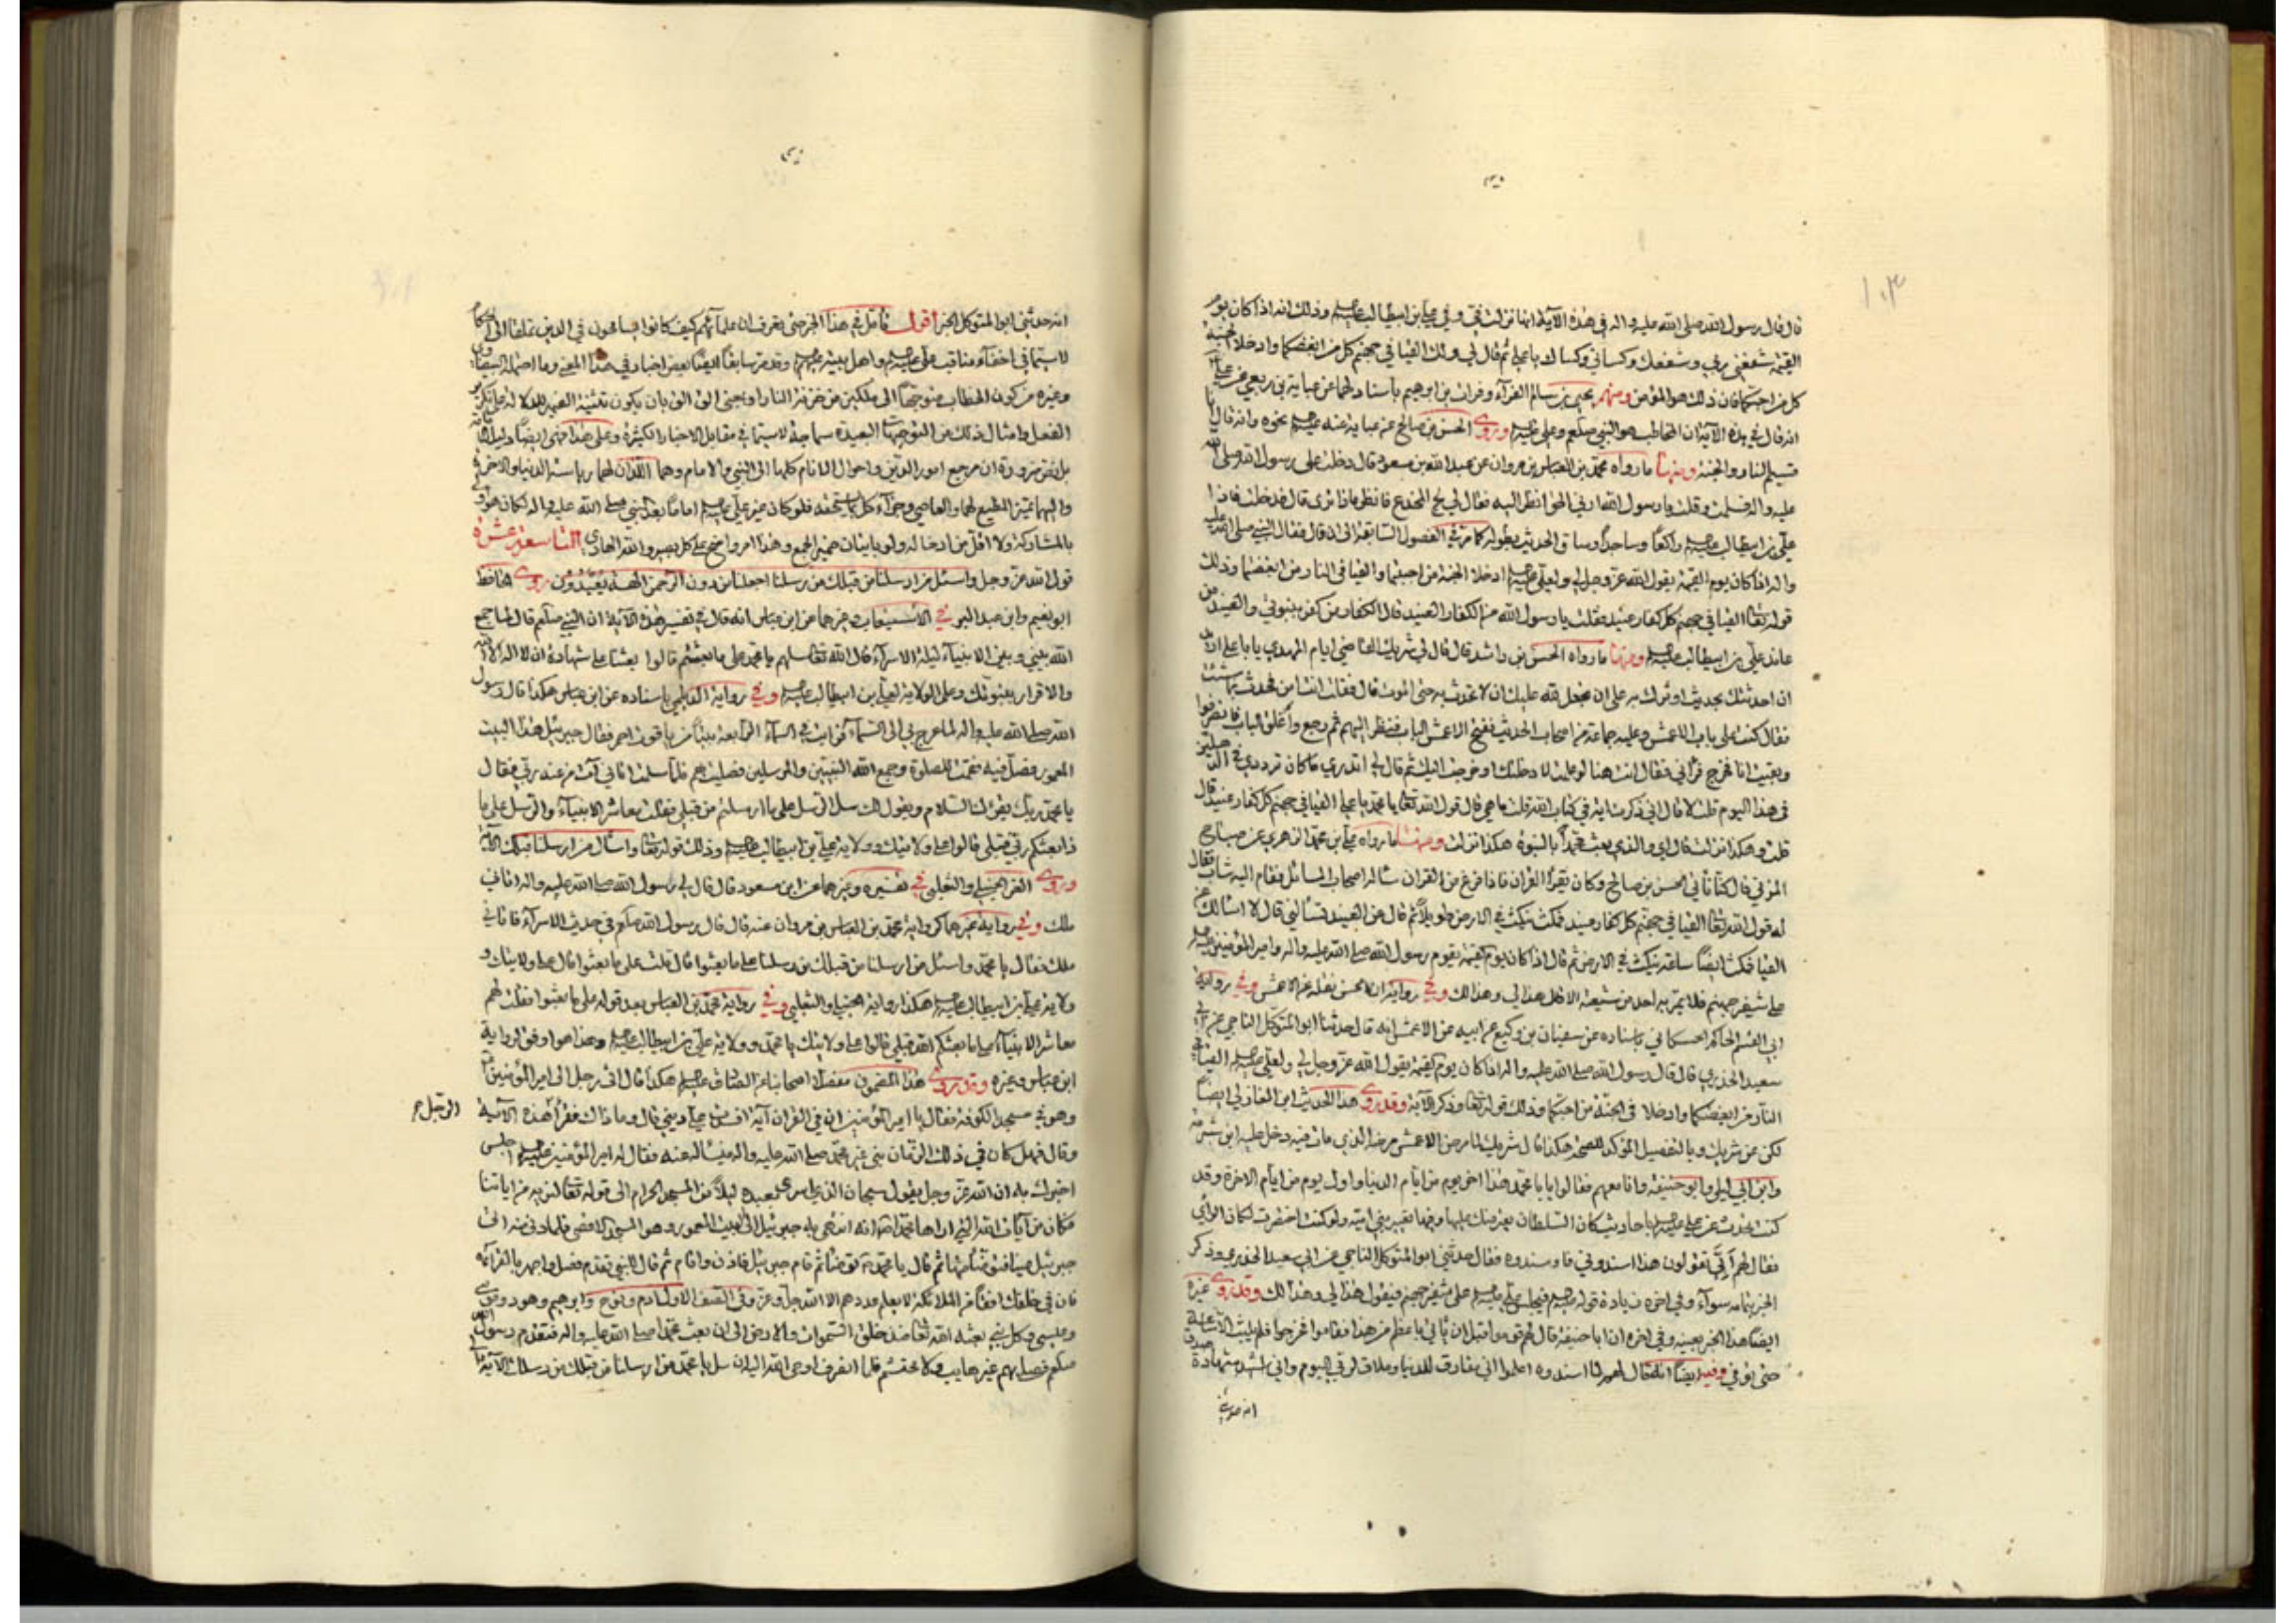 قال قال رسول الله صلى الله عليه واله في هذه الآية انها نزلت في وفي علي بن ابيطالب عليه وذلك انه اذا كان يوم
القيمة شفعني ربي وشفعك وكساني وكساك يا علي ثم قال لي ولك القيا في جهنم كل من ابغضكما وادخلا الجنة
كل من احبكما فان ذلك هو المؤمن ومنهم يحيى بن سالم الفرآء وفرات بن ابرهيم باسنادهما عن عباية بن ربعي عن علي
انه قال في هذه الآية ان المخاطب هو النبي صلعم وعلي عليه وروى الحسن بن صالح عن عباية عنه عليه نحوه وانه قال انا
قسيم النار والجنة ومنها ما رواه محمد بن العباس بن مروان عن عبد الله بن مسعود قال دخلت على رسول الله صلى الله
عليه واله فسلمت وقلت يا رسول الله ارني الحق انظر اليه فقال لي لج المخدع فانظر ماذا ترى قال فدخلت فاذا
علي بن ابيطالب عليه راكعا وساجدا وساق الحديث بطوله كما مر في الفصول السابقة الى ان قال فقال النبي صلى الله عليه
واله اذا كان يوم القيمة يقول الله عز وجل لي ولعلي عليه ادخلا الجنة من احببتما والقيا في النار من ابغضتما وذلك
قوله تعالى القيا في جهنم كل كفار عنيد فقلت يا رسول الله من الكفار العنيد قال الكفار من كفر بنبوتي والعنيد من
عاند علي بن ابيطالب عليه ومنها ما رواه الحسن بن راشد قال قال لي شريك القاضي ايام المهدي يا با علي
ان احدثك بحديث اوثرك به على ان تجعل لله عليك ان لا تحدث به حتى اموت قال فقلت انت امن فحدث بما شئت
فقال كنت على باب الاعمش وعليه جماعة من اصحاب الحديث ففتح الاعمش الباب فنظر اليهم ثم رجع واغلق الباب فانصرفوا
وبقيت انا فخرج فرآني فقال انت هنا لو علمت لادخلتك او خرجت اليك ثم قال لي اتدري ما كان ترددي في الدهليز
في هذا اليوم قلت لا قال اني ذكرت اية في كتاب الله قلت ما هي قال قول الله تعالى يا محمد يا علي القيا في جهنم كل كفار عنيد قال
قلت وهكذا نزلت قال اي والذي بعث محمدا بالنبوة هكذا نزلت ومنها ما رواه علي بن محمد الزهري عن صباح
المزني قال كنا ناتي الحسن بن صالح وكان يقرأ القران فاذا فرغ من القران ساله اصحاب المسائل فقام اليه شاب فقال
له قول الله تعالى القيا في جهنم كل كفار عنيد فمكث ينكت في الارض طويلا ثم قال عن العنيد تسألني قال لا اسالك عن
القيا فمكث ايضا ساعة ينكت في الارض ثم قال اذا كان يوم القيمة يقوم رسول الله صلى الله عليه واله وامير المؤمنين عليه
على شفير جهنم فلا يمر به احد من شيعته الا قال هذا لي وهذا لك وفي رواية ان الحسن نقله عن الاعمش وفي رواية
ابي القسم الحاكم الحسكاني باسناده عن سفيان بن وكيع عن ابيه عن الاعمش انه قال حدثنا ابو المتوكل الناجي عن ابي
سعيد الخدري قال قال رسول الله صلى الله عليه واله اذا كان يوم القيمة يقول الله عز وجل لي ولعلي عليه القيا في
النار من ابغضكما وادخلا في الجنة من احبكما وذلك قوله تعالى وذكر الآية وقد روى هذا الحديث ابن المغازلي ايضا
لكن عن شريك وبالتفصيل المؤكد للصحة هكذا قال شريك لما مرض الاعمش مرضه الذي مات فيه دخل عليه ابن شبرمة
وابن ابي ليلى وابو حنيفة وانا معهم فقالوا يا با محمد هذا اخر يوم من ايام الدنيا واول يوم من ايام الاخرة وقد
كنت تحدث عن علي عليه باحاديث كان السلطان يعترضك عليها وفيها تعيير بني امية ولو كنت اختصرت لكان الرأي
فقال لهم ألي تقولون هذا اسندوني فاسندوه فقال حدثني ابو المتوكل الناجي عن ابي سعيد الخدري وذكر
الخبر بتمامه سوآء وفي اخره زيادة قوله عليه فيجلس علي عليه على شفير جهنم فيقول هذا لي وهذا لك وقد روى غيره
ايضا هذا الخبر بعينه وفي اخره ان ابا حنيفة قال لهم قوموا قبل ان ياتي باعظم من هذا فقاموا فخرجوا فلم يلبث الا ساعة
حتى توفي وفيه ايضا انه قال لهم لما اسندوه اعلموا اني مفارق للدنيا وملاق لربي اليوم واني اشهد شهادة صدق
انه حدثني
انه حدثني ابو المتوكل الخبر أقول فأمل في هذا الخبر حتى تعرف ان علمآئهم كيف كانوا يسامحون في الدين تملقا الى الحكام
لا سيما في اخفآء مناقب علي عليه واهل بيته عليهم وقد مر سابقا ايضا بعض اخبار في هذا المعنى وما احتمله البيضاوي
وغيره من كون الخطاب متوجها الى ملكين من خزنة النار او بمعنى الق الق بان يكون تثنية الضمير للدلالة على تكرير
الفعل وامثال ذلك من التوجيهات البعيدة سماجة لا سيما في مقابل الاخبار الكثيرة وعلى هذا فهي ايضا دليل
بل نص ضرورة ان مرجع امور الدين واحوال الانام كلها الى النبي والامام وهما اللذان لهما رياسة الدنيا والاخرة
واليهما تميز المطيع لهما والعاصي وجزآء كل بما يستحقه فلو كان غير علي عليه اماما بعد النبي صلى الله عليه واله لكان هو
بالمشاركة ولا اقل من ادخاله ولو باتيان ضمير الجمع وهذا امر واضح على كل بصير والله الهادي التاسعة عشرة
قول الله عز وجل واسئل من ارسلنا من قبلك من رسلنا اجعلنا من دون الرحمن الهة يعبدون روى الحافظ
ابو نعيم وابن عبد البر في الاستيعاب وغيرهما عن ابن عباس انه قال في تفسير هذه الآية ان النبي صلعم قال لما جمع
الله بيني وبين الانبيآء ليلة الاسرآء قال الله تعالى سلهم يا محمد على ما بعثتم قالوا بعثنا على شهادة ان لا اله الا الله
والاقرار بنبوتك وعلى الولاية لعلي بن ابيطالب عليه وفي رواية الديلمي باسناده عن ابن عباس هكذا قال رسول
الله صلى الله عليه واله لما عرج بي الى السمآء فرايت في السمآء الرابعة بيتا من ياقوت احمر فقال جبرئيل هذا البيت
المعمور فصل فيه فقمت للصلوة وجمع الله النبيين والمرسلين فصليت بهم فلما سلمت اتاني آت من عند ربي فقال
يا محمد ربك يقرئك السلام ويقول لك سل الرسل على ما ارسلتهم من قبلي فقلت معاشر الانبيآء والرسل على ما
ذا بعثكم ربي قبلي قالوا على ولايتك وولاية علي بن ابيطالب عليه وذلك قوله تعالى واسأل من ارسلنا قبلك الآية
وروى العز الحنبلي والثعلبي في تفسيره وغيرهما عن ابن مسعود قال قال لي رسول الله صلى الله عليه واله اتاني
ملك وفي رواية غيرهما كرواية محمد بن العباس بن مروان عنه قال قال رسول الله صلعم في حديث الاسرآء فاتاني
ملك فقال يا محمد واسئل من ارسلنا من قبلك من رسلنا على ما بعثوا قال قلت على ما بعثوا قال على ولايتك و
ولاية علي بن ابيطالب عليه هكذا رواية الحنبلي والثعلبي وفي رواية محمد بن العباس بعد قوله على ما بعثوا فقلت لهم
معاشر الانبيآء على ما بعثكم الله قبلي قالوا على ولايتك يا محمد وولاية علي بن ابيطالب عليه وهذا هو اوفق لرواية
ابن عباس وغيره وقد روى هذا المضمون مفصلا اصحابنا عن الصادق عليه هكذا قال اتى رجل الى امير المؤمنين
وهو في مسجد الكوفة فقال يا امير المؤمنين ان في القران آية افسدت علي ديني قال وما ذاك فقرأ هذه الآية
وقال فهل كان في ذلك الزمان نبي غير محمد صلى الله عليه واله فيسأله عنه فقال له امير المؤمنين عليه اجلس
اخبرك به ان الله عز وجل يقول سبحان الذي اسرى بعبده ليلا من المسجد الحرام الى قوله تعالى لنريه من اياتنا
فكان من آيات الله التي اراها محمدا انه انتهى به جبرئيل الى البيت المعمور وهو المسجد الاقصى فلما دنى منه اتى
جبرئيل عينا فتوضأ منها ثم قال يا محمد توضأ ثم قام جبرئيل فاذن واقام ثم قال للنبي تقدم فصل واجهر بالقرائة
فان في خلفك افقا من الملائكة لا يعلم عددهم الا الله جل وعز وفي الصف الاول ادم ونوح وابرهيم وهود وموسى
وعيسى وكل نبي بعثه الله تعالى منذ خلق السموات والارض الى ان بعث محمدا صلى الله عليه واله فتقدم رسول الله
صلعم فصلى بهم غير هايب ولا محتشم فلما انصرف اوحى الله اليه ان سل يا محمد من ارسلنا من قبلك من رسلنا الآية